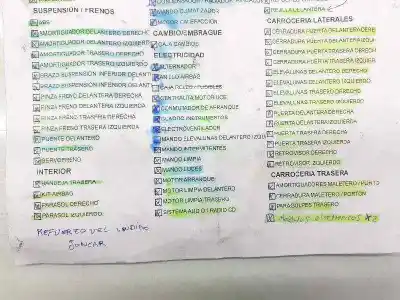 SUSPENSIÓN / FRENOS
ABS
AMORTIGUADOR DELANTERO DERECHO
AMORTIGUADOR DELANTERO IZQUIERDO
AMORTIGUADOR TRASERO DERECHO
AMORTIGUADOR TRASERO IZQUIERDO
BRAZO SUSPENSION INFERIOR DELANT
BRAZO SUSPENSION INFERIOR DELANT
PINZA FRENO DELANTERA DERECHA
PINZA FRENO DELANTERA IZQUIERDA
PINZA FRENO TRASERA DERECHA
PINZA FRENO TRASERA IZQUIERDA
PUENTE DELANTERO
PUENTE TRASERO
SERVOFRENO
INTERIOR
BANDEJA TRASERA
KIT AIRBAG
PARASOL DERECHO
PARASOL IZQUIERDO
REFUERZO DEL
MOTOR CALEFACCION
CAMBIO/EMBRAGUE
CAJA CAMBIOS
ELECTRICIDAD
ALTERNADOR
CAJA RELES / FUSIBLES
CENTRALITA MOTOR UCE
CONMUTADOR DE ARRANQUE
CUADRO INSTRUMENTOS
ELECTROVENTILADOR
MANDO ELEVALUNAS DELANTERO IZQU
MANDO INTERMITENTES
MANDO LIMPIA
MANDO LUCES
MOTOR ARRANQUE
MOTOR LIMPIA DELANTERO
MOTOR LIMPIA TRASERO
SISTEMA AUDIO / RADIO CD
CARROCERIA LATERALES
CERRADURA PUERTA DELANTERA DERE
CERRADURA PUERTA DELANTERA IZQU
CERRADURA PUERTA TRASERA DERECH
CERRADURA PUERTA TRASERA IZQUIE
ELEVALUNAS DELANTERO DERECHO
ELEVALUNAS DELANTERO IZQUIERDO
ELEVALUNAS TRASERO DERECHO
ELEVALUNAS TRASERO IZQUIERDO
PUERTA DELANTERA DERECHA
PUERTA DELANTERA IZQUIERDA
PUERTA TRASERA DERECHA
PUERTA TRASERA IZQUIERDA
RETROVISOR DERECHO
RETROVISOR IZQUIERDO
CARROCERIA TRASERA
AMORTIGUADORES MALETERO / PORTO
CERRADURA MALETERO / PORTON
PARAGOLPES TRASERO